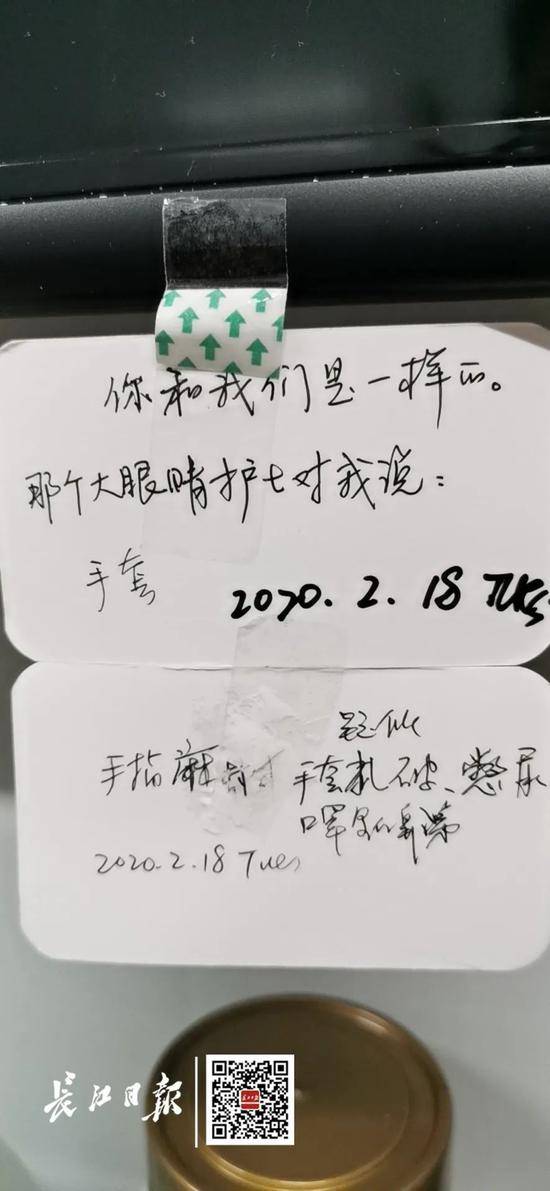 你和我们是一样的。
那个大眼睛护士对我说：
手套
2020.2.18 Tues
疑似
手指麻 手套扎破、憋尿
口罩
2020.2.18 Tues
长江日报